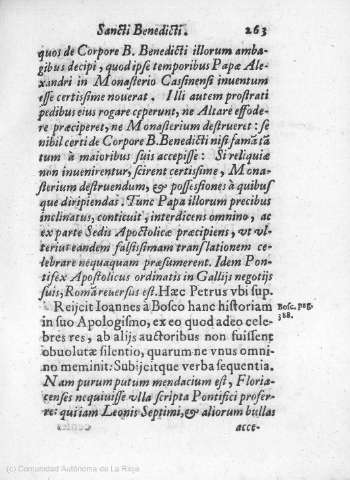 Sancti Benedicti. 263
quos de Corpore B. Benedicti illorum amba-
gibus decipi, quod ipse temporibus Papæ Ale-
xandri in Monasterio Cassinensi inuentum
esse certissime nouerat. Illi autem prostrati
pedibus eius rogare cœperunt, ne Altare effode-
re præciperet, ne Monasterium destrueret: se
nihil certi de Corpore B. Benedicti nisi famā tā
tum à maioribus suis accepisse: Si reliquiæ
non inuenirentur, scirent certissime, Mona-
sterium destruendum, & possessiones à quibus
que diripiendas. Tunc Papa illorum precibus
inclinatus, conticuit, interdicens omnino, ac
ex parte Sedis Apostolicæ præcipiens, vt vl-
terius eandem falsissimam translationem ce-
lebrare nequaquam præsumerent. Idem Pon-
tifex Apostolicus ordinatis in Gallijs negotijs
suis, Romā reuersus est. Hæc Petrus vbi sup.
Reijcit Ioannes à Bosco hanc historiam
Bosc. pag.
388.
in suo Apologismo, ex eo quod adeo cele-
bres res, ab alijs auctoribus non fuissent
obuolutæ silentio, quarum ne vnus omni-
no meminit: Subijcitque verba sequentia.
Nam purum putum mendacium est, Floria-
censes nequiuisse vlla scripta Pontifici profer-
re: qui iam Leonis Septimi, & aliorum bullas
acce-
(c) Comunidad Autónoma de La Rioja